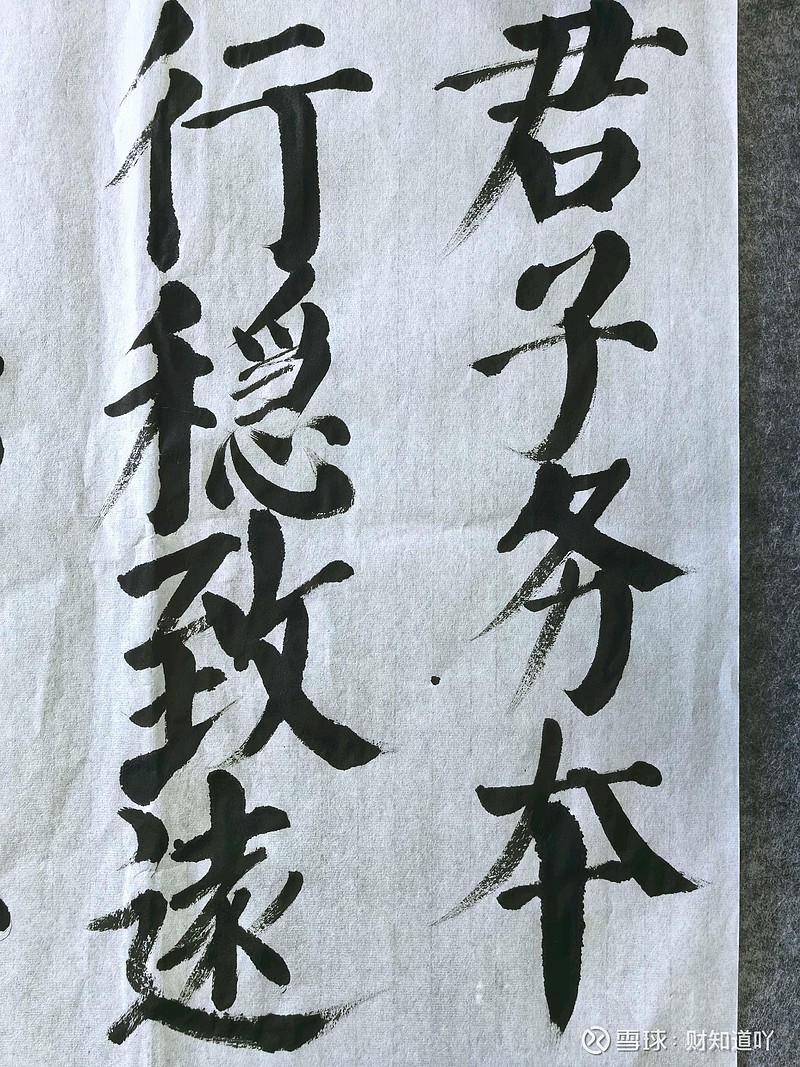 君子务本
行稳致遠
雪球：财知道吖